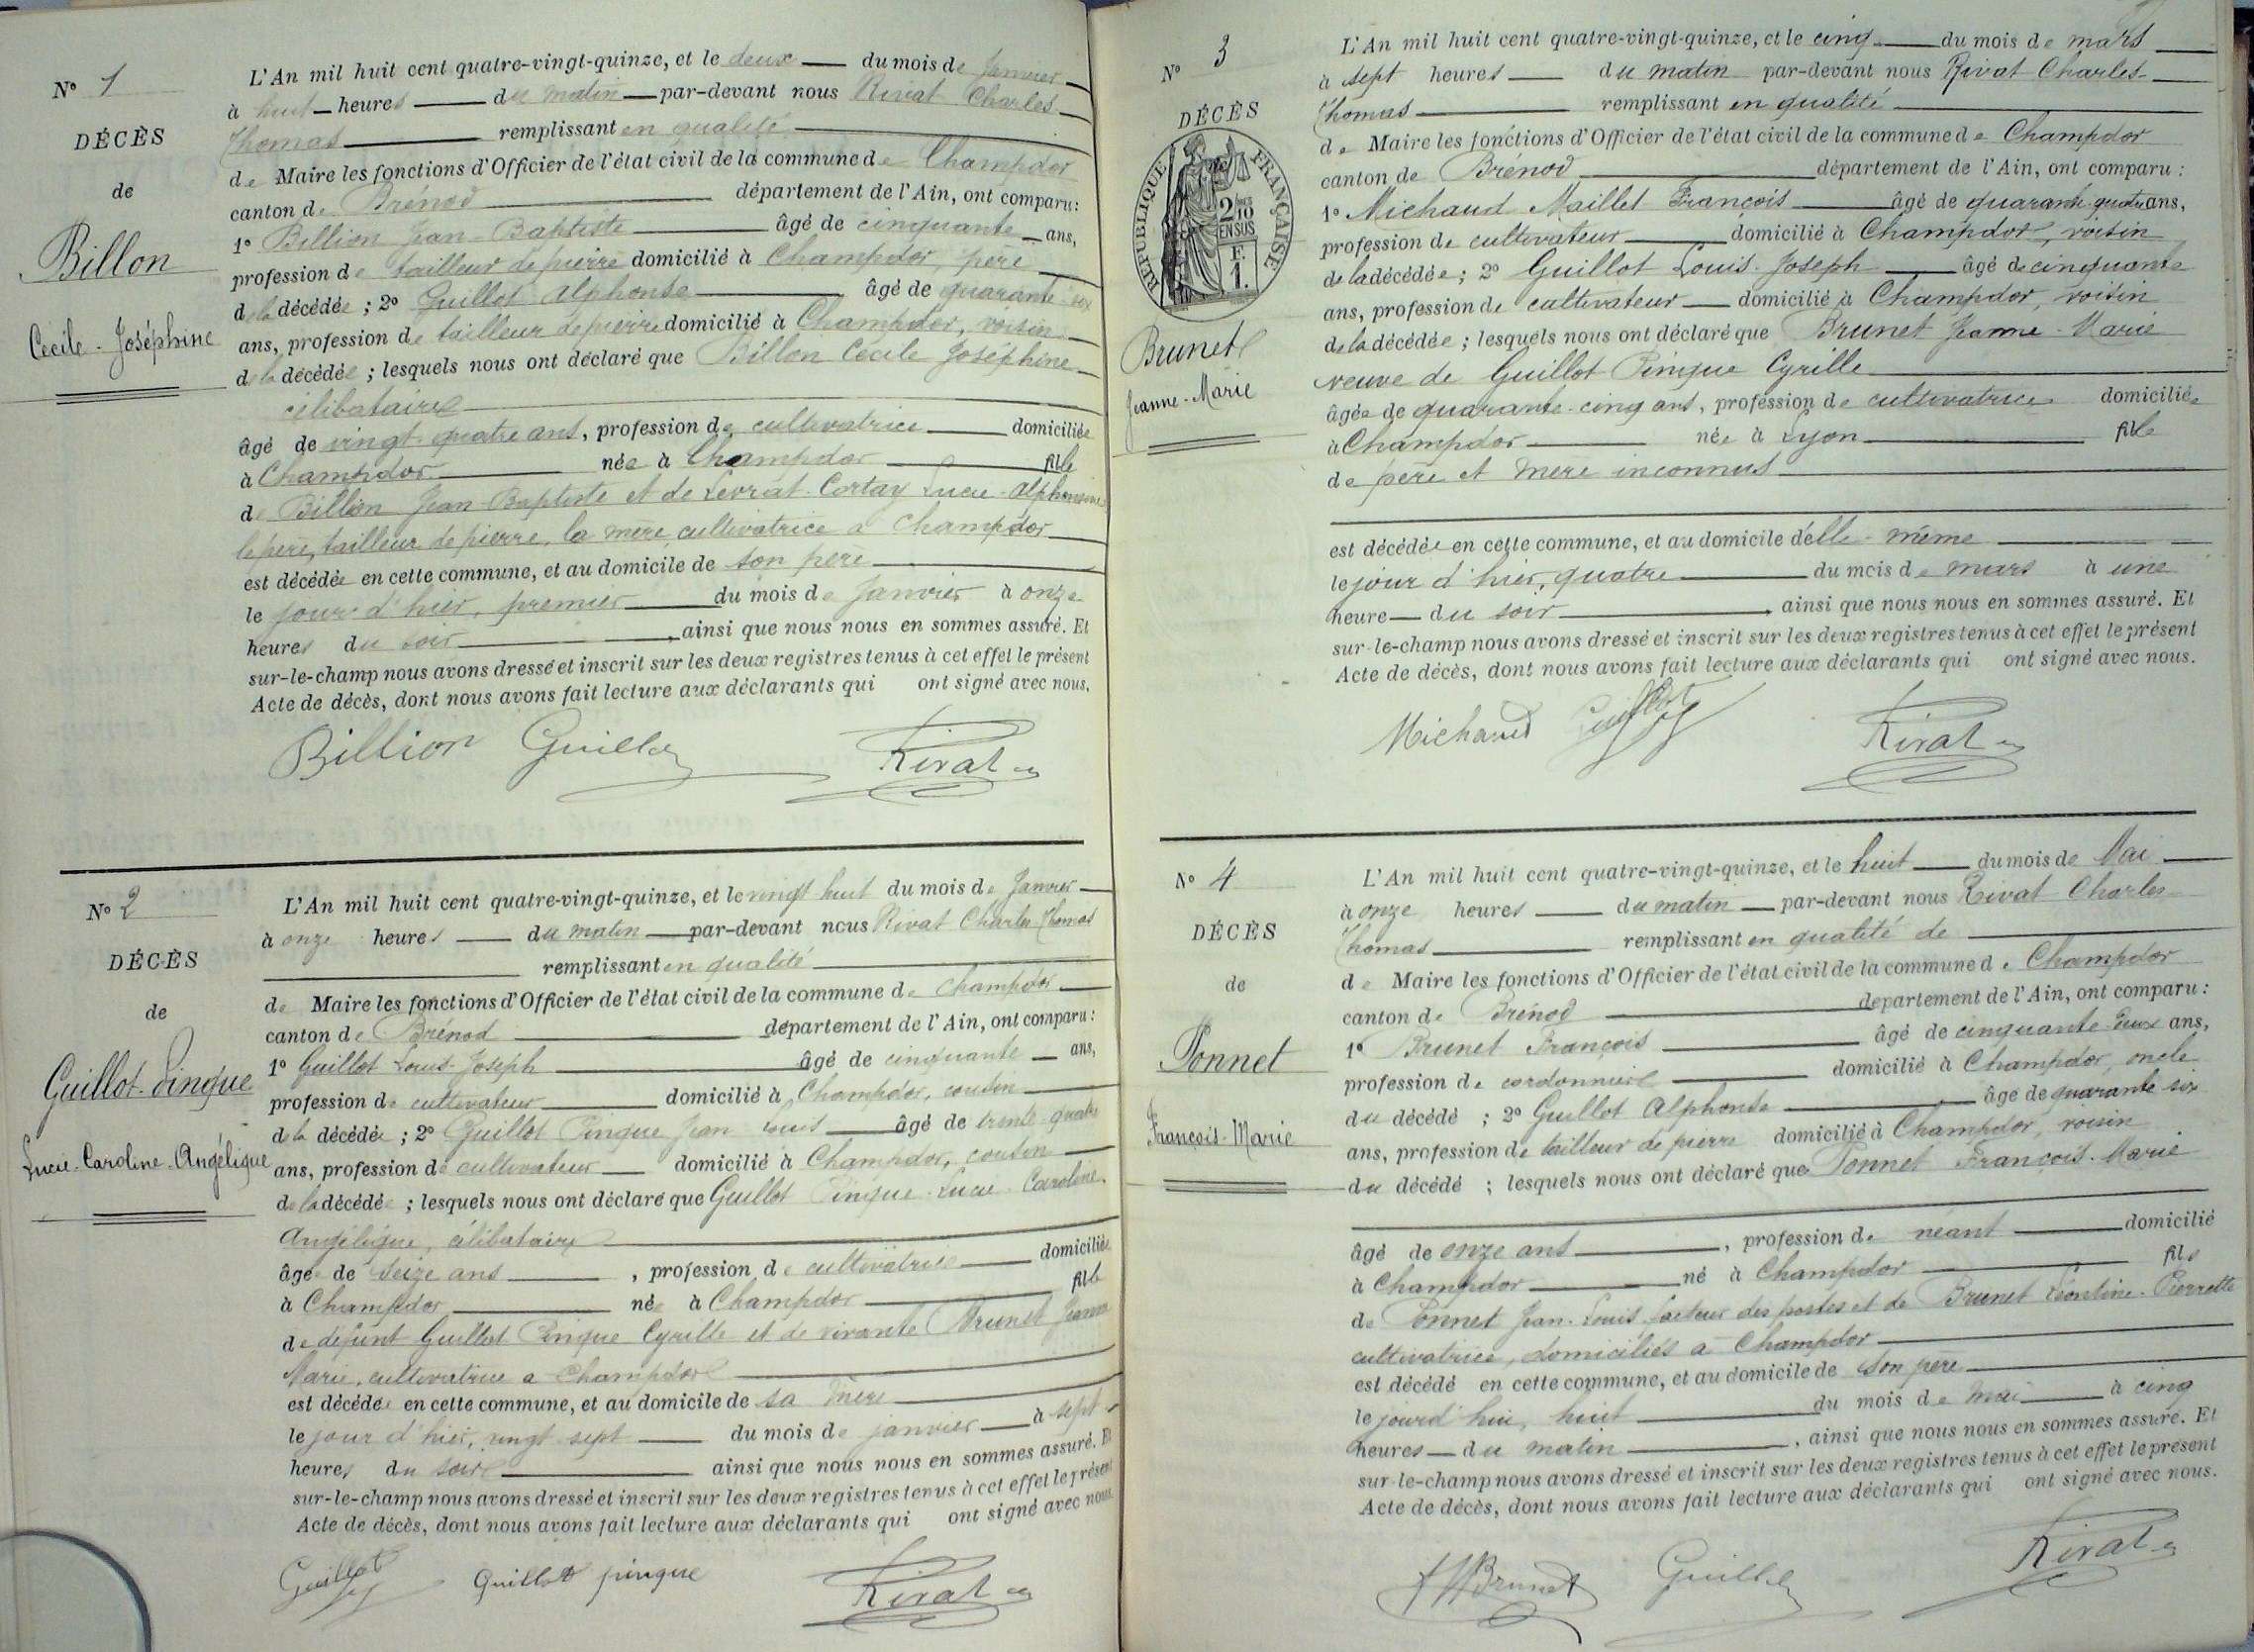 N° 1
DÉCÈS
de
Billon
Cécile-Joséphine
L'An mil huit cent quatre-vingt-quinze, et le deux du mois de Janvier
à huit heures du matin par-devant nous Rivat Charles
Thomas remplissant en qualité
de Maire les fonctions d'Officier de l'état civil de la commune de Champdor
canton de Brénod département de l'Ain, ont comparu:
1° Billion Jean-Baptiste âgé de cinquante ans,
profession de tailleur de pierre domicilié à Champdor, père
de la décédée ; 2° Guillot Alphonse âgé de quarante-six
ans, profession de tailleur de pierre domicilié à Champdor, voisin
de la décédée ; lesquels nous ont déclaré que Billon Cécile Joséphine
célibataire
âgé de vingt-quatre ans, profession de cultivatrice domiciliée
à Champdor née à Champdor fille
de Billion Jean-Baptiste et de Levrat-Cortay Lucie-Alphonsine
le père, tailleur de pierre, la mère cultivatrice à Champdor
est décédée en cette commune, et au domicile de son père
le jour d'hier, premier du mois de Janvier à onze
heures du soir, ainsi que nous nous en sommes assuré. Et
sur-le-champ nous avons dressé et inscrit sur les deux registres tenus à cet effet le présent
Acte de décès, dont nous avons fait lecture aux déclarants qui ont signé avec nous.
Billion Guillot Rivat
N° 2
DÉCÈS
de
Guillot-Pingue
Lucie-Caroline-Angélique
L'An mil huit cent quatre-vingt-quinze, et le vingt huit du mois de Janvier
à onze heures du matin par-devant nous Rivat Charles Thomas
remplissant en qualité
de Maire les fonctions d'Officier de l'état civil de la commune de Champdor
canton de Brénod département de l'Ain, ont comparu:
1° Guillot Louis-Joseph âgé de cinquante ans,
profession de cultivateur domicilié à Champdor, cousin
de la décédée ; 2° Guillot Pingue Jean Louis âgé de trente-quatre
ans, profession de cultivateur domicilié à Champdor, cousin
de la décédée ; lesquels nous ont déclaré que Guillot Pingue-Lucie-Caroline-
Angélique, célibataire
âgée de seize ans, profession de cultivatrice domiciliée
à Champdor née à Champdor fille
de défunt Guillot Pingue Cyrille et de vivante Brunet Jeanne
Marie, cultivatrice à Champdor
est décédée en cette commune, et au domicile de sa mère
le jour d'hier, vingt sept du mois de janvier à sept
heures du soir ainsi que nous nous en sommes assuré. Et
sur-le-champ nous avons dressé et inscrit sur les deux registres tenus à cet effet le présent
Acte de décès, dont nous avons fait lecture aux déclarants qui ont signé avec nous.
Guillot Guillot pingue Rivat
N° 3
DÉCÈS
RÉPUBLIQUE FRANÇAISE
2/10 EN SUS
F. 1.
Brunet
Jeanne-Marie
L'An mil huit cent quatre-vingt-quinze, et le cinq du mois de mars
à sept heures du matin par-devant nous Rivat Charles
Thomas remplissant en qualité
de Maire les fonctions d'Officier de l'état civil de la commune de Champdor
canton de Brénod département de l'Ain, ont comparu :
1° Michaud Maillet François âgé de quarante-quatre ans,
profession de cultivateur domicilié à Champdor, voisin
de la décédée ; 2° Guillot Louis-Joseph âgé de cinquante
ans, profession de cultivateur domicilié à Champdor, voisin
de la décédée ; lesquels nous ont déclaré que Brunet Jeanne-Marie
veuve de Guillot Pingue Cyrille
âgée de quarante-cinq ans, profession de cultivatrice domiciliée
à Champdor née à Lyon fille
de père et mère inconnus
est décédée en cette commune, et au domicile d'elle-même
le jour d'hier, quatre du mois de mars à une
heure du soir, ainsi que nous nous en sommes assuré. Et
sur-le-champ nous avons dressé et inscrit sur les deux registres tenus à cet effet le présent
Acte de décès, dont nous avons fait lecture aux déclarants qui ont signé avec nous.
Michaud Guillot Rivat
N° 4
DÉCÈS
de
Ponnet
François-Marie
L'An mil huit cent quatre-vingt-quinze, et le huit du mois de Mai
à onze heures du matin par-devant nous Rivat Charles
Thomas remplissant en qualité de
de Maire les fonctions d'Officier de l'état civil de la commune de Champdor
canton de Brénod département de l'Ain, ont comparu :
1° Brunet François âgé de cinquante-deux ans,
profession de cordonnier domicilié à Champdor, oncle
du décédé ; 2° Guillot Alphonse âgé de quarante six
ans, profession de tailleur de pierre domicilié à Champdor, voisin
du décédé ; lesquels nous ont déclaré que Ponnet François-Marie
âgé de onze ans, profession de néant domicilié
à Champdor né à Champdor fils
de Ponnet Jean-Louis facteur des postes et de Brunet Léontine-Pierrette
cultivatrice, domiciliés à Champdor
est décédé en cette commune, et au domicile de son père
le jourd'hui, huit du mois de mai à cinq
heures du matin, ainsi que nous nous en sommes assuré. Et
sur-le-champ nous avons dressé et inscrit sur les deux registres tenus à cet effet le présent
Acte de décès, dont nous avons fait lecture aux déclarants qui ont signé avec nous.
Brunet Guillot Rivat